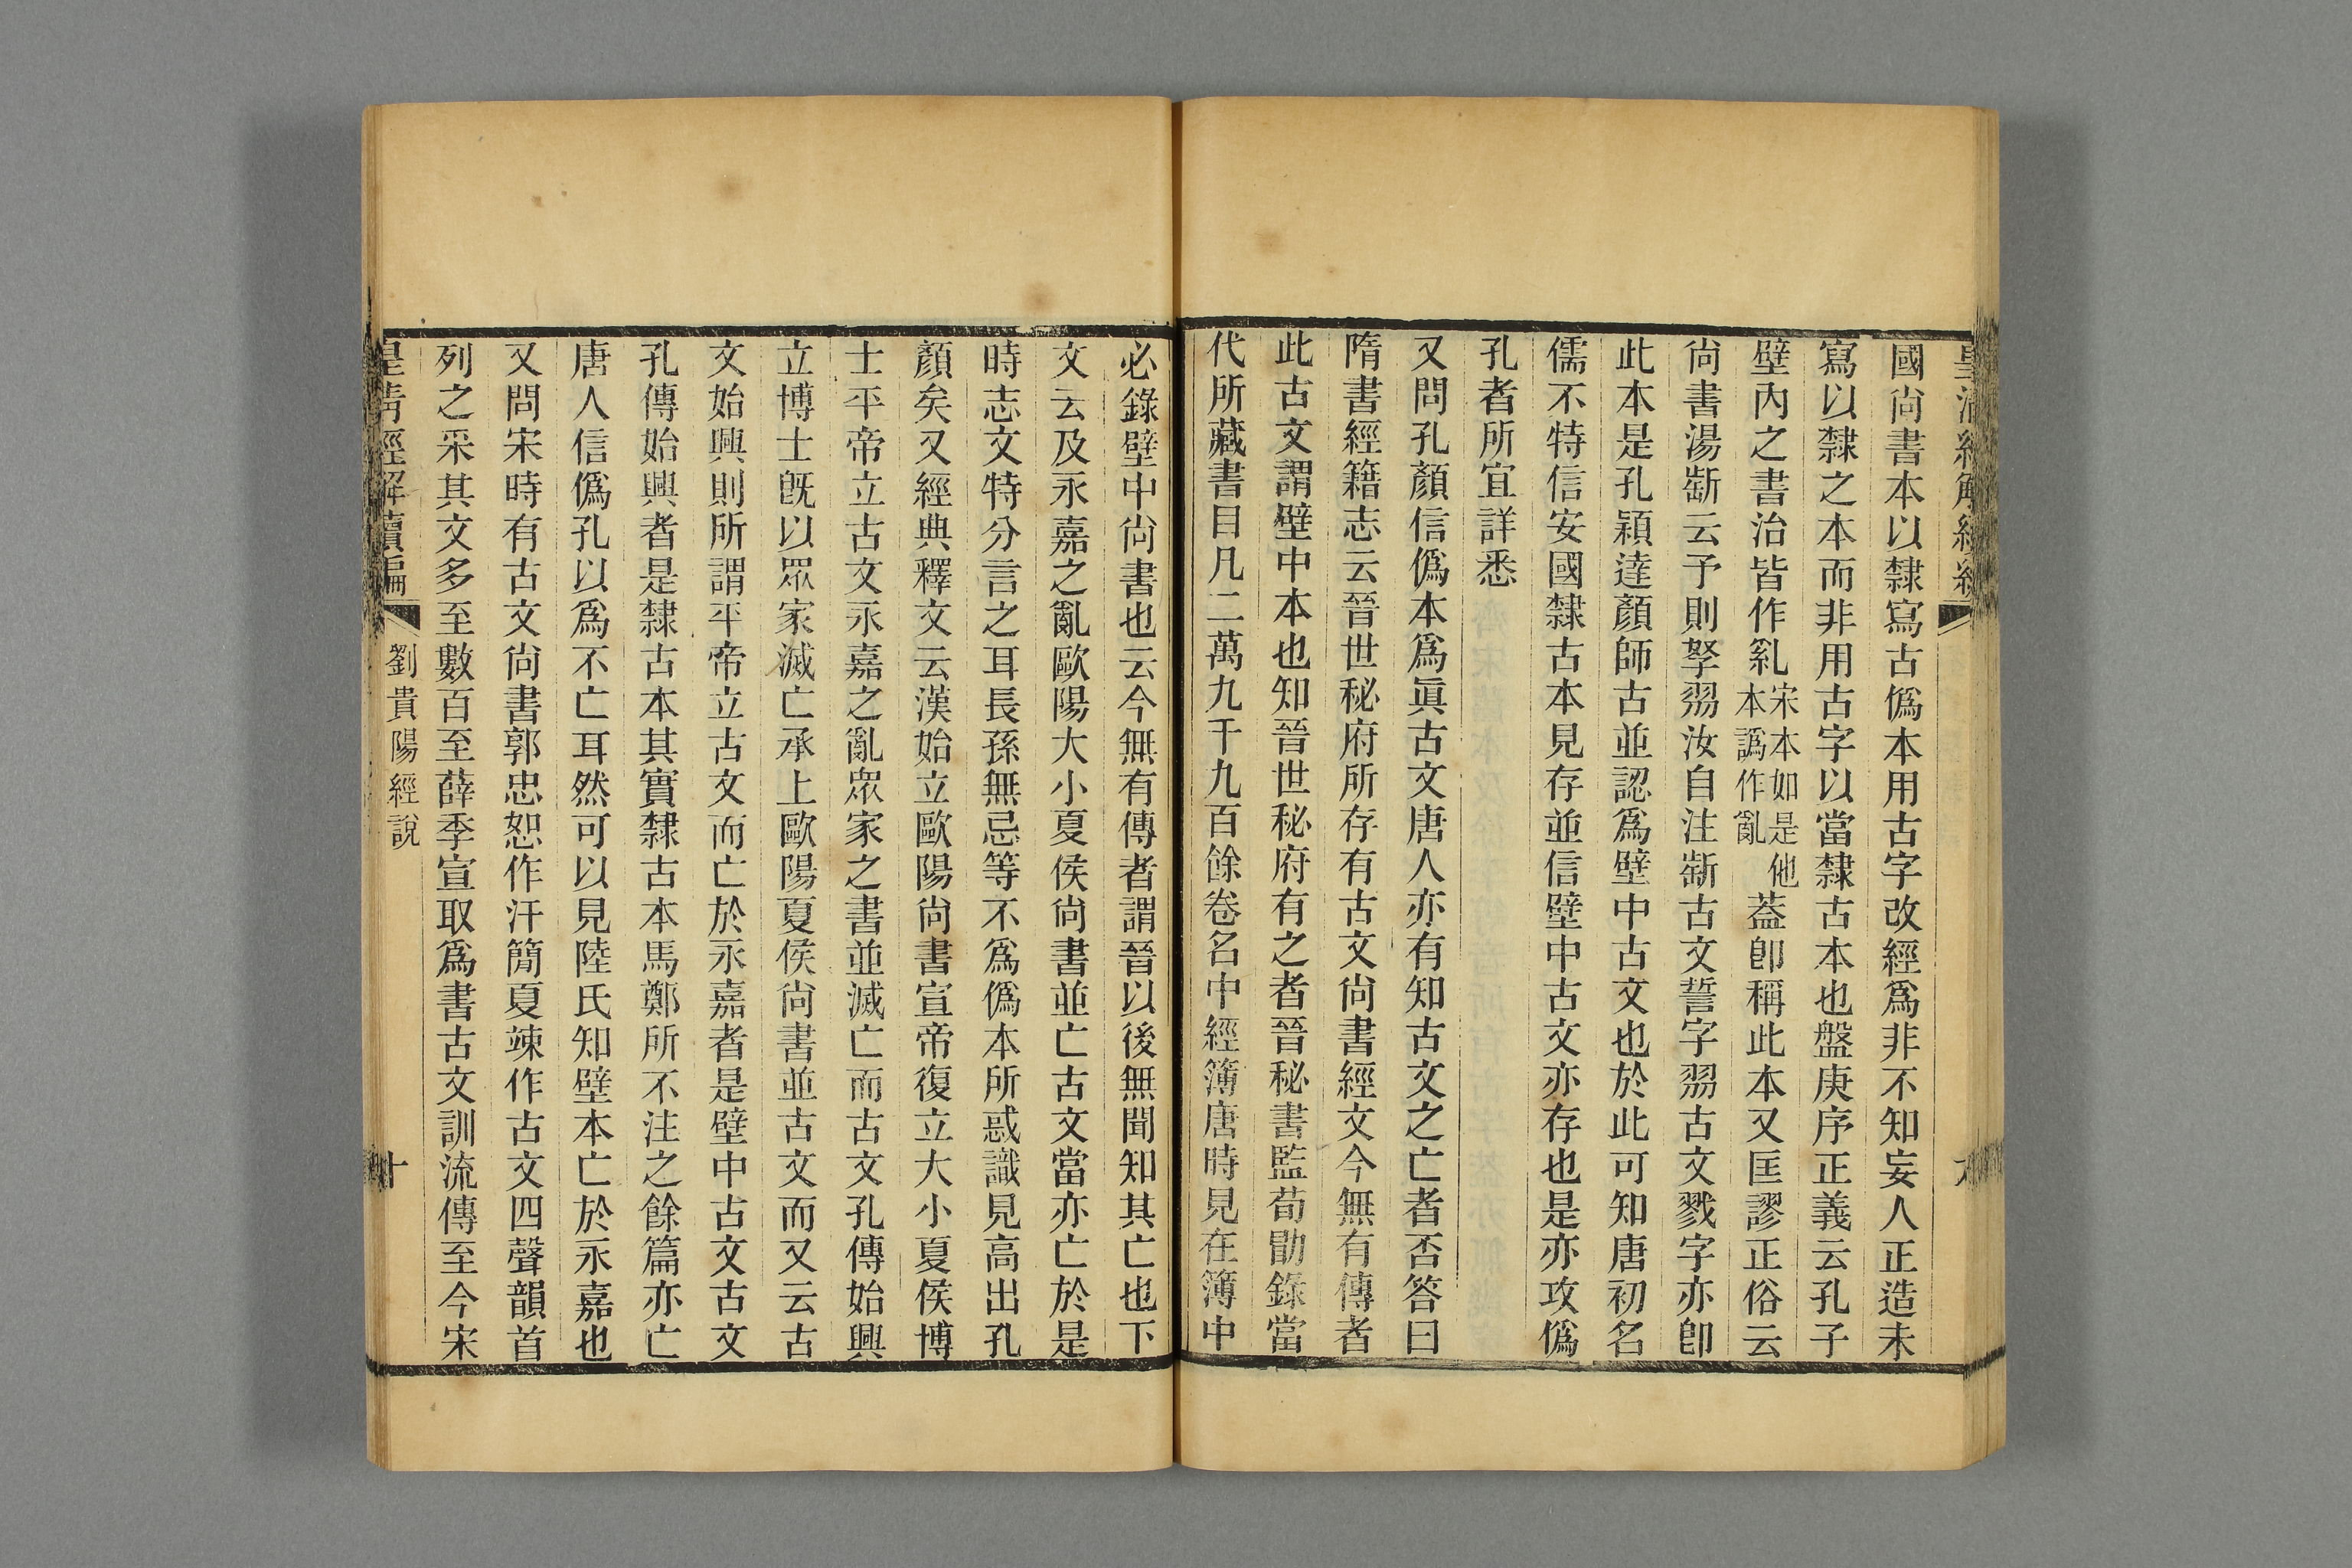 國尙書本以隸寫古僞本用古字改經爲非不知妄人正造未
寫以隸之本而非用古字以當隸古本也盤庚序正義云孔子
壁內之書治皆作乿宋本如是他本譌作亂葢卽稱此本又匡謬正俗云
尙書湯斮云予則孥翏汝自注斮古文誓字翏古文戮字亦卽
此本是孔穎達顏師古並認爲壁中古文也於此可知唐初名
儒不特信安國隸古本見存並信壁中古文亦存也是亦攻僞
孔者所宜詳悉
又問孔顏信僞本爲眞古文唐人亦有知古文之亡者否答曰
隋書經籍志云晉世秘府所存有古文尙書經文今無有傳者
此古文謂壁中本也知晉世秘府有之者晉秘書監荀勖錄當
代所藏書目凡二萬九千九百餘卷名中經簿唐時見在簿中
必錄壁中尙書也云今無有傳者謂晉以後無聞知其亡也下
文云及永嘉之亂歐陽大小夏侯尙書並亡古文當亦亡於是
時志文特分言之耳長孫無忌等不爲僞本所惑識見高出孔
顏矣又經典釋文云漢始立歐陽尙書宣帝復立大小夏侯博
士平帝立古文永嘉之亂眾家之書並滅亡而古文孔傳始興
立博士旣以眾家滅亡承上歐陽夏侯尙書並古文而又云古
文始興則所謂平帝立古文而亡於永嘉者是壁中古文古文
孔傳始興者是隸古本其實隸古本馬鄭所不注之餘篇亦亡
唐人信僞孔以爲不亡耳然可以見陸氏知壁本亡於永嘉也
又問宋時有古文尙書郭忠恕作汗簡夏竦作古文四聲韻首
列之采其文多至數百至薛季宣取爲書古文訓流傳至今宋
皇淸經解續編 劉貴陽經說 十